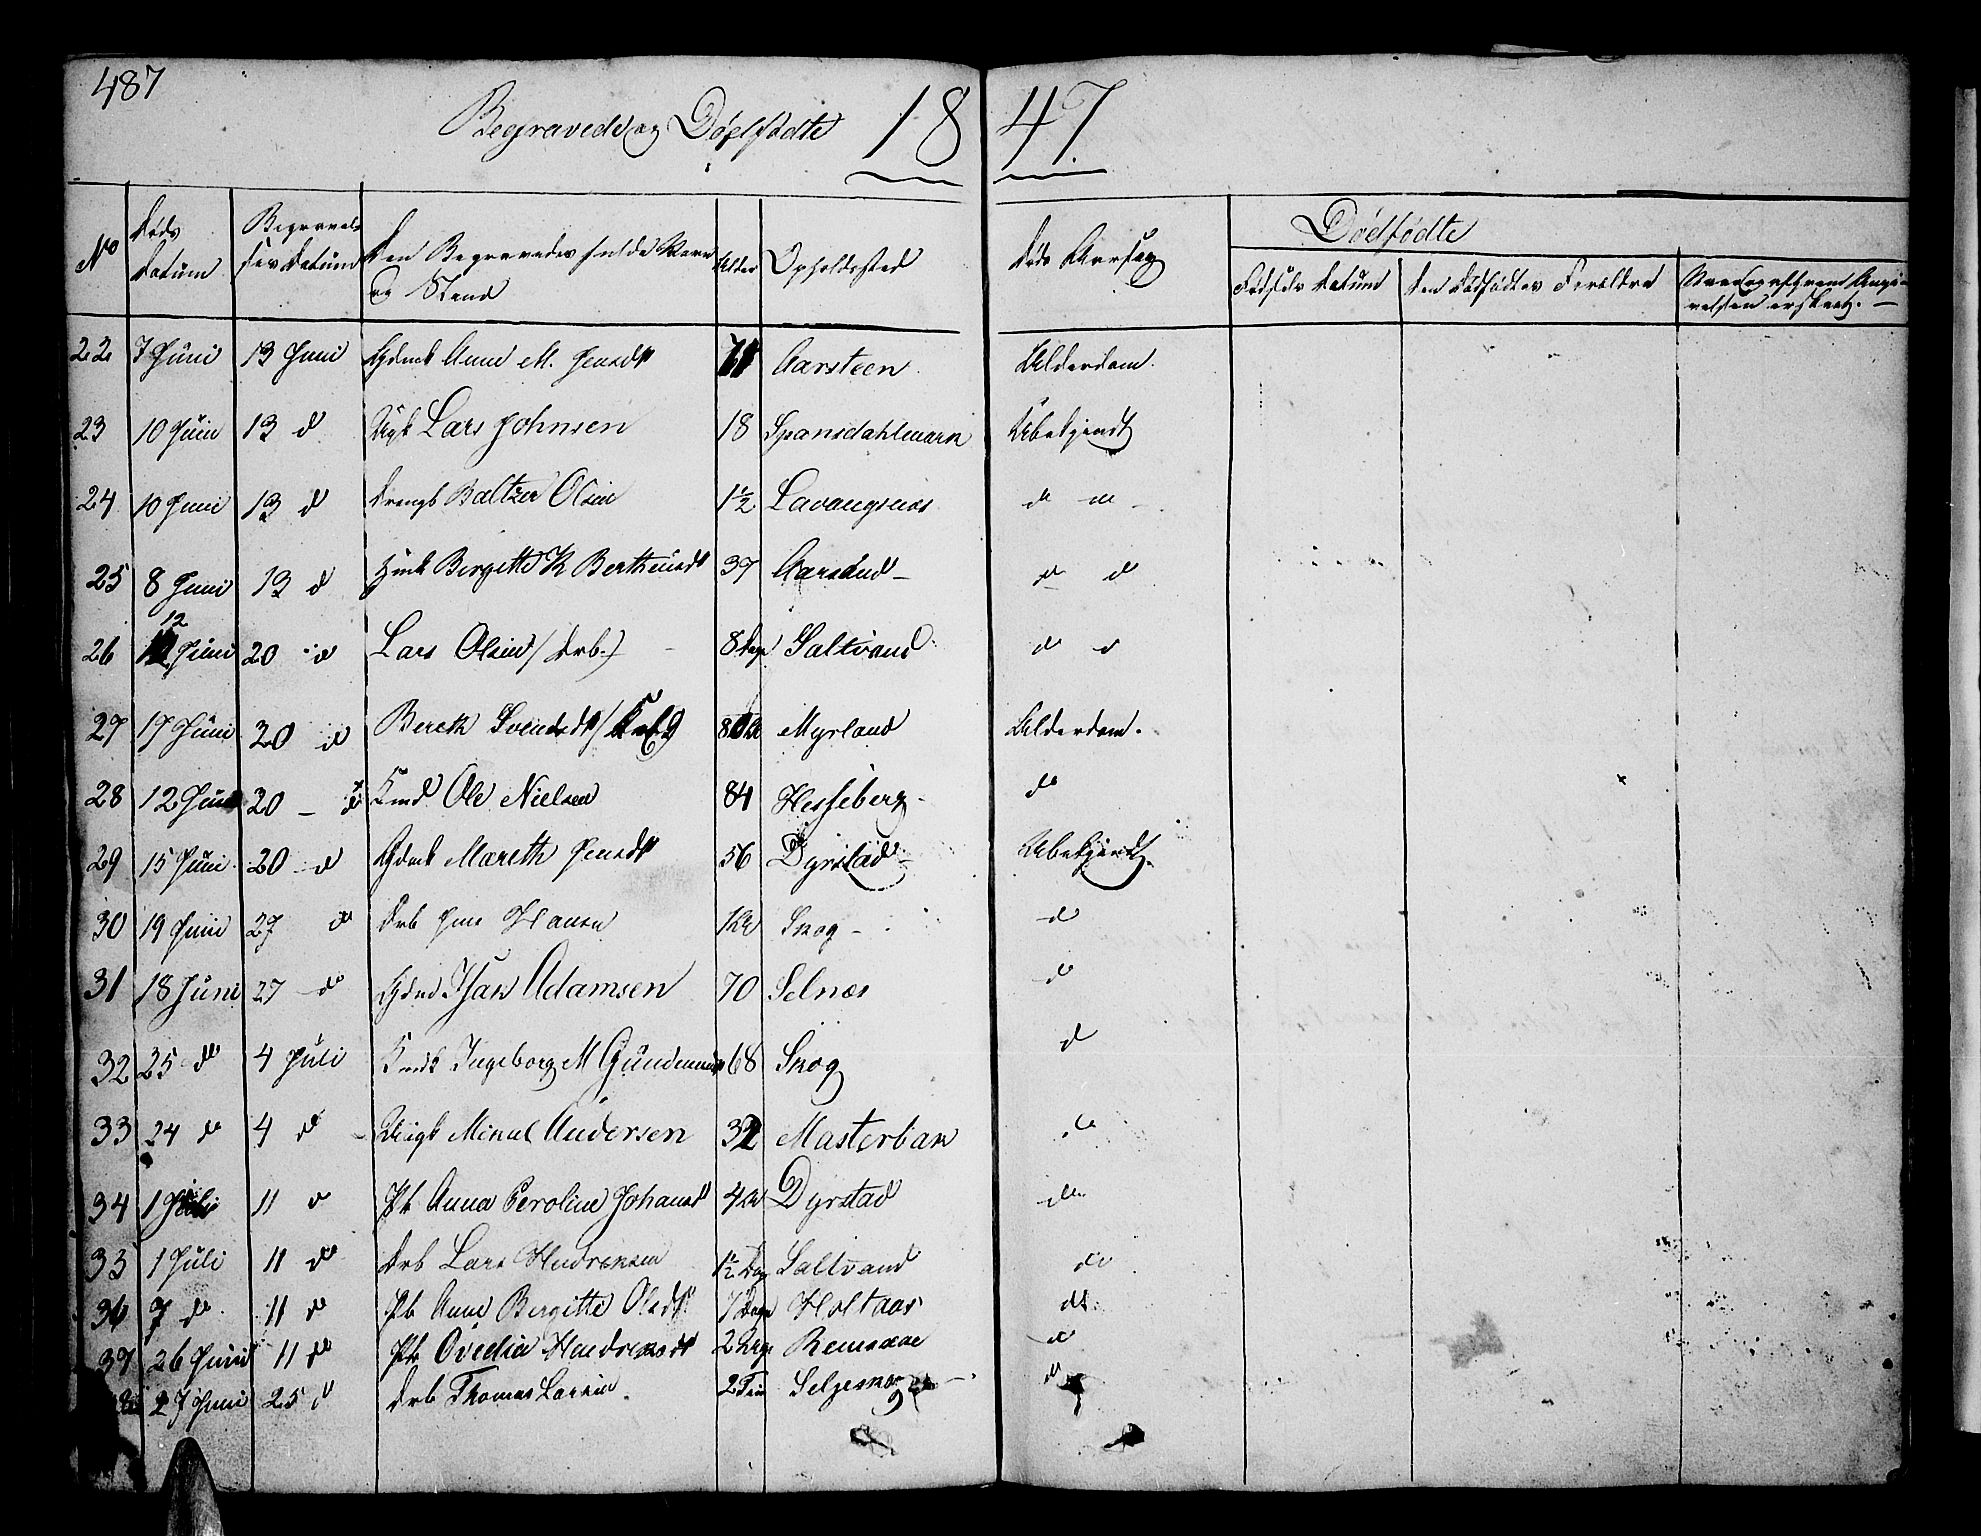 487
Begravede og Døelfødte 1847.
No Døds Datum Begravelses Datum Den Begravedes fulde Navn og Stand Alder Opholdssted Døds Aarsag Døelfødte
Fødsels Datum Den Dødfødtes Foreldre
22 7 Juni 13 Juni Anne M. Jensdt 71 Aarsteen Alderdom.
23 10 Juni 13 d Ugk Lars Johnsen 18 Spansdahlmark Ubekjendt
24 10 Juni 13 d Dreng Baltzer Olsen 1½ Lavangsnæs d
25 8 Juni 13 d Birgitte K Bertheusdt 37 Aarsand d d
26 12 Juni 20 d Lars Olsen / Drb.) 8 Dage Saltvand d d
27 17 Juni 20 d Bereth Svendsdt / Myrland Alderdom.
28 12 Juni 20 - d Kmd Ole Nielsen 84 Hesseberg d
29 15 Juni 20 d Mareth Jensdt 56 Dyrstad Ubekjendt.
30 19 Juni 27 d Drb Jens Hansen Skog d
31 18 Juni 27 d Isak Adamsen 70 Selnæs d
32 25 d 4 Juli Ingeborg M Gundersen 68 Skog d
33 24 d 4 d Ungk Mikal Andersen 32 Masterbak d
34 1 Juli 11 d Pk Anna Caroline Johansdt Dyrstad d
35 1 Juli 11 d Drb Lars Hendriksen 1½ Dag Saltvand d
36 7 d 11 d Pb Anne Bergitte Olsdt 7 Dage Holtaas d
37 26 Juni 11 d Pk Ovedia Hendriksdt 2 Dage d
38 27 Juni 25 d Drb Thomas Larsen. d